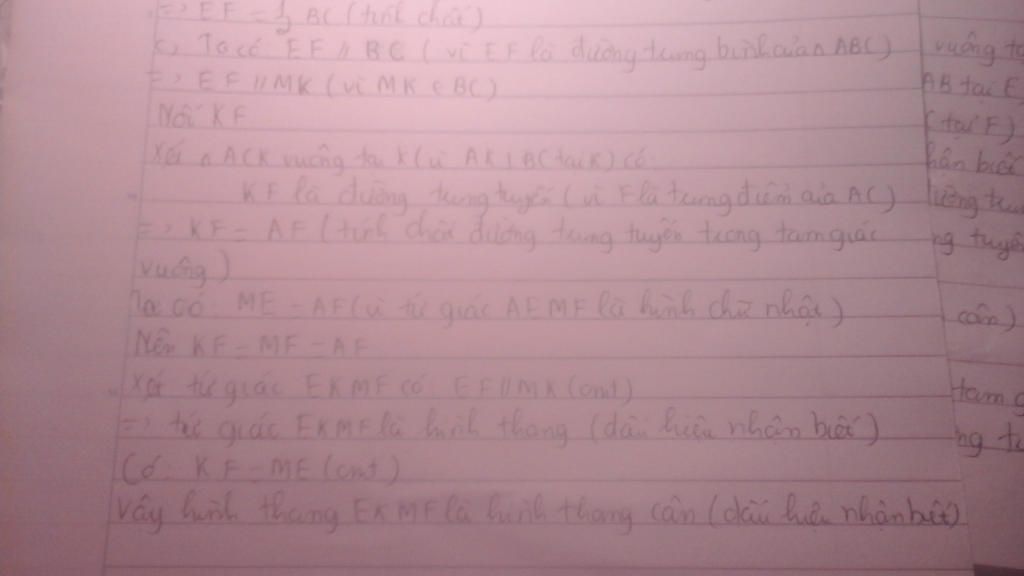 => EF = 1/2 BC (tính chất)
c, Ta có EF // BC (vì EF là đường trung bình của ∆ ABC)
=> EF // MK (vì MK ∈ BC)
Nối KF
Xét ∆ ACK vuông tại K (vì AK ⊥ BC tại K) có
KF là đường trung tuyến (vì F là trung điểm của AC)
=> KF = AF (tính chất đường trung tuyến trong tam giác
vuông)
Ta có ME = AF (vì tứ giác AEMF là hình chữ nhật)
Nên KF = MF = AF
Xét tứ giác EKMF có EF // MK (cmt)
=> tứ giác EKMF là hình thang (dấu hiệu nhận biết)
Có KF = ME (cmt)
Vậy hình thang EKMF là hình thang cân (dấu hiệu nhận biết)
vuông
AB tại E
(tại F)
biết
cân)